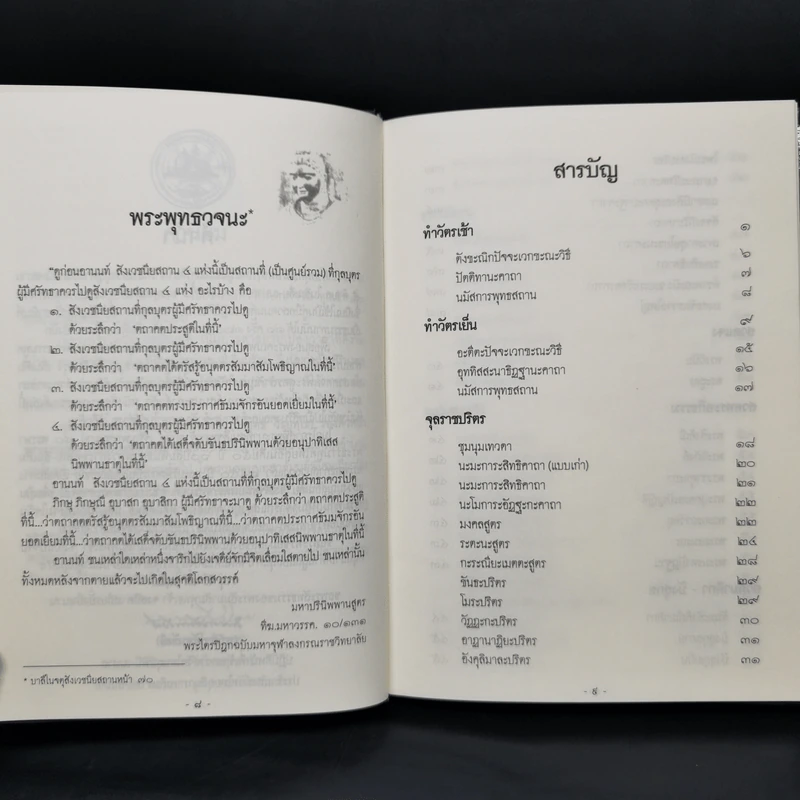 พระพุทธวจนะ*
"ดูก่อนอานนท์ สังเวชนียสถาน ๔ แห่งนี้เป็นสถานที่ (เป็นศูนย์รวม) ที่กุลบุตร
ผู้มีศรัทธาควรไปดูสังเวชนียสถาน ๔ แห่ง อะไรบ้าง คือ
๑. สังเวชนียสถานที่กุลบุตรผู้มีศรัทธาควรไปดู
ด้วยระลึกว่า 'ตถาคตประสูติในที่นี้'
๒. สังเวชนียสถานที่กุลบุตรผู้มีศรัทธาควรไปดู
ด้วยระลึกว่า 'ตถาคตได้ตรัสรู้อนุตตรสัมมาสัมโพธิญาณในที่นี้'
๓. สังเวชนียสถานที่กุลบุตรผู้มีศรัทธาควรไปดู
ด้วยระลึกว่า 'ตถาคตทรงประกาศธัมมจักรอันยอดเยี่ยมในที่นี้'
๔. สังเวชนียสถานที่กุลบุตรผู้มีศรัทธาควรไปดู
ด้วยระลึกว่า 'ตถาคตได้เสด็จดับขันธปรินิพพานด้วยอนุปาทิเสส
นิพพานธาตุในที่นี้'
อานนท์ สังเวชนียสถาน ๔ แห่งนี้เป็นสถานที่ที่กุลบุตรผู้มีศรัทธาควรไปดู
ภิกษุ ภิกษุณี อุบาสก อุบาสิกา ผู้มีศรัทธาจะมาดู ด้วยระลึกว่า ตถาคตประสูติ
ที่นี้...ว่าตถาคตตรัสรู้อนุตตรสัมมาสัมโพธิญาณที่นี้...ว่าตถาคตประกาศธัมมจักรอัน
ยอดเยี่ยมที่นี้...ว่าตถาคตได้เสด็จดับขันธปรินิพพานด้วยอนุปาทิเสสนิพพานธาตุในที่นี้
อานนท์ ชนเหล่าใดเหล่าหนึ่งจาริกไปยังเจดีย์จักมีจิตเลื่อมใสตายไป ชนเหล่านั้น
ทั้งหมดหลังจากตายแล้วจะไปเกิดในสุคติโลกสวรรค์
มหาปรินิพพานสูตร
ทีฆ.มหาวรรค. ๑๐/๑๓๑
พระไตรปิฎกฉบับมหาจุฬาลงกรณราชวิทยาลัย
* บาลีในจตุสังเวชนียสถานหน้า ๗๐
- ๘ -
สารบัญ
ทำวัตรเช้า ๑
ตังขะณิกปัจจะเวกขะณะวิธี ๖
ปัตติทานะคาถา ๗
นมัสการพุทธสถาน ๘
ทำวัตรเย็น ๙
อะตีตะปัจจะเวกขะณะวิธี ๑๕
อุททิสสะนาธิฏฐานะคาถา ๑๖
นมัสการพุทธสถาน ๑๗
จุลราชปริตร
ชุมนุมเทวดา ๑๘
นะมะการะสิทธิคาถา (แบบเก่า) ๒๐
นะมะการะสิทธิคาถา ๒๑
นะโมการะอัฏฐะกะคาถา ๒๒
มงคลสูตร ๒๒
ระตะนะสูตร ๒๔
กะระณียะเมตตะสูตร ๒๘
ขันธะปริตร ๒๙
โมระปริตร ๒๙
วัฏฏะกะปริตร ๓๐
อาฏานาฏิยะปริตร ๓๑
อังคุลิมาละปริตร ๓๑
- ๙ -